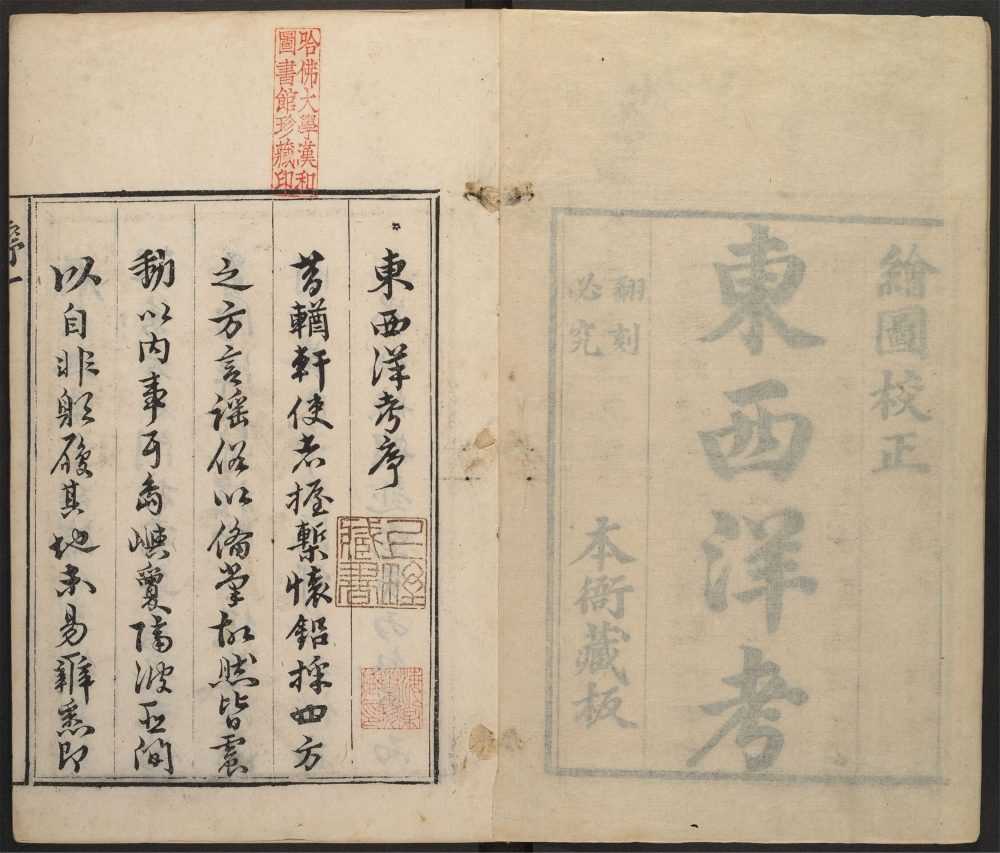 繪圖校正
東西洋考
翻刻
必究
本衙藏板
哈佛大學漢和
圖書館珍藏印
東西洋考序
昔輶軒使者握槧懷鉛採四方
之方言謡俗以備掌故然皆震
動以内事耳島嶼敻隔波間
以自非躬履其地未易悉即
藏書
序一